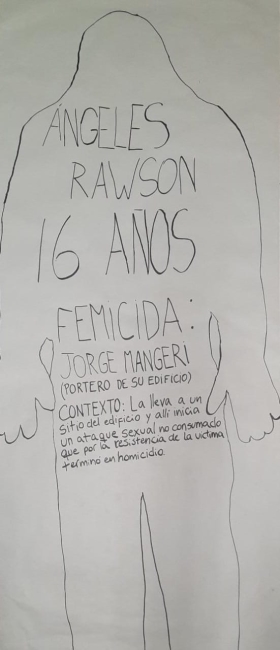 ÁNGELES
RAWSON
16 AÑOS
FEMICIDA:
JORGE MANGERI
(PORTERO DE SU EDIFICIO)
CONTEXTO: La lleva a un
sitio del edificio y allí inicia
un ataque sexual no consumado
que por la resistencia de la víctima
terminó en homicidio.